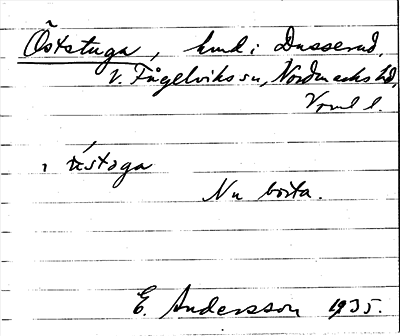 Öststuga, hmd i Dusserud,
V. Fågelviks sn, Nordmarks hd,
Vrml l.
i ústoga
Nu borta.
E. Andersson 1935.